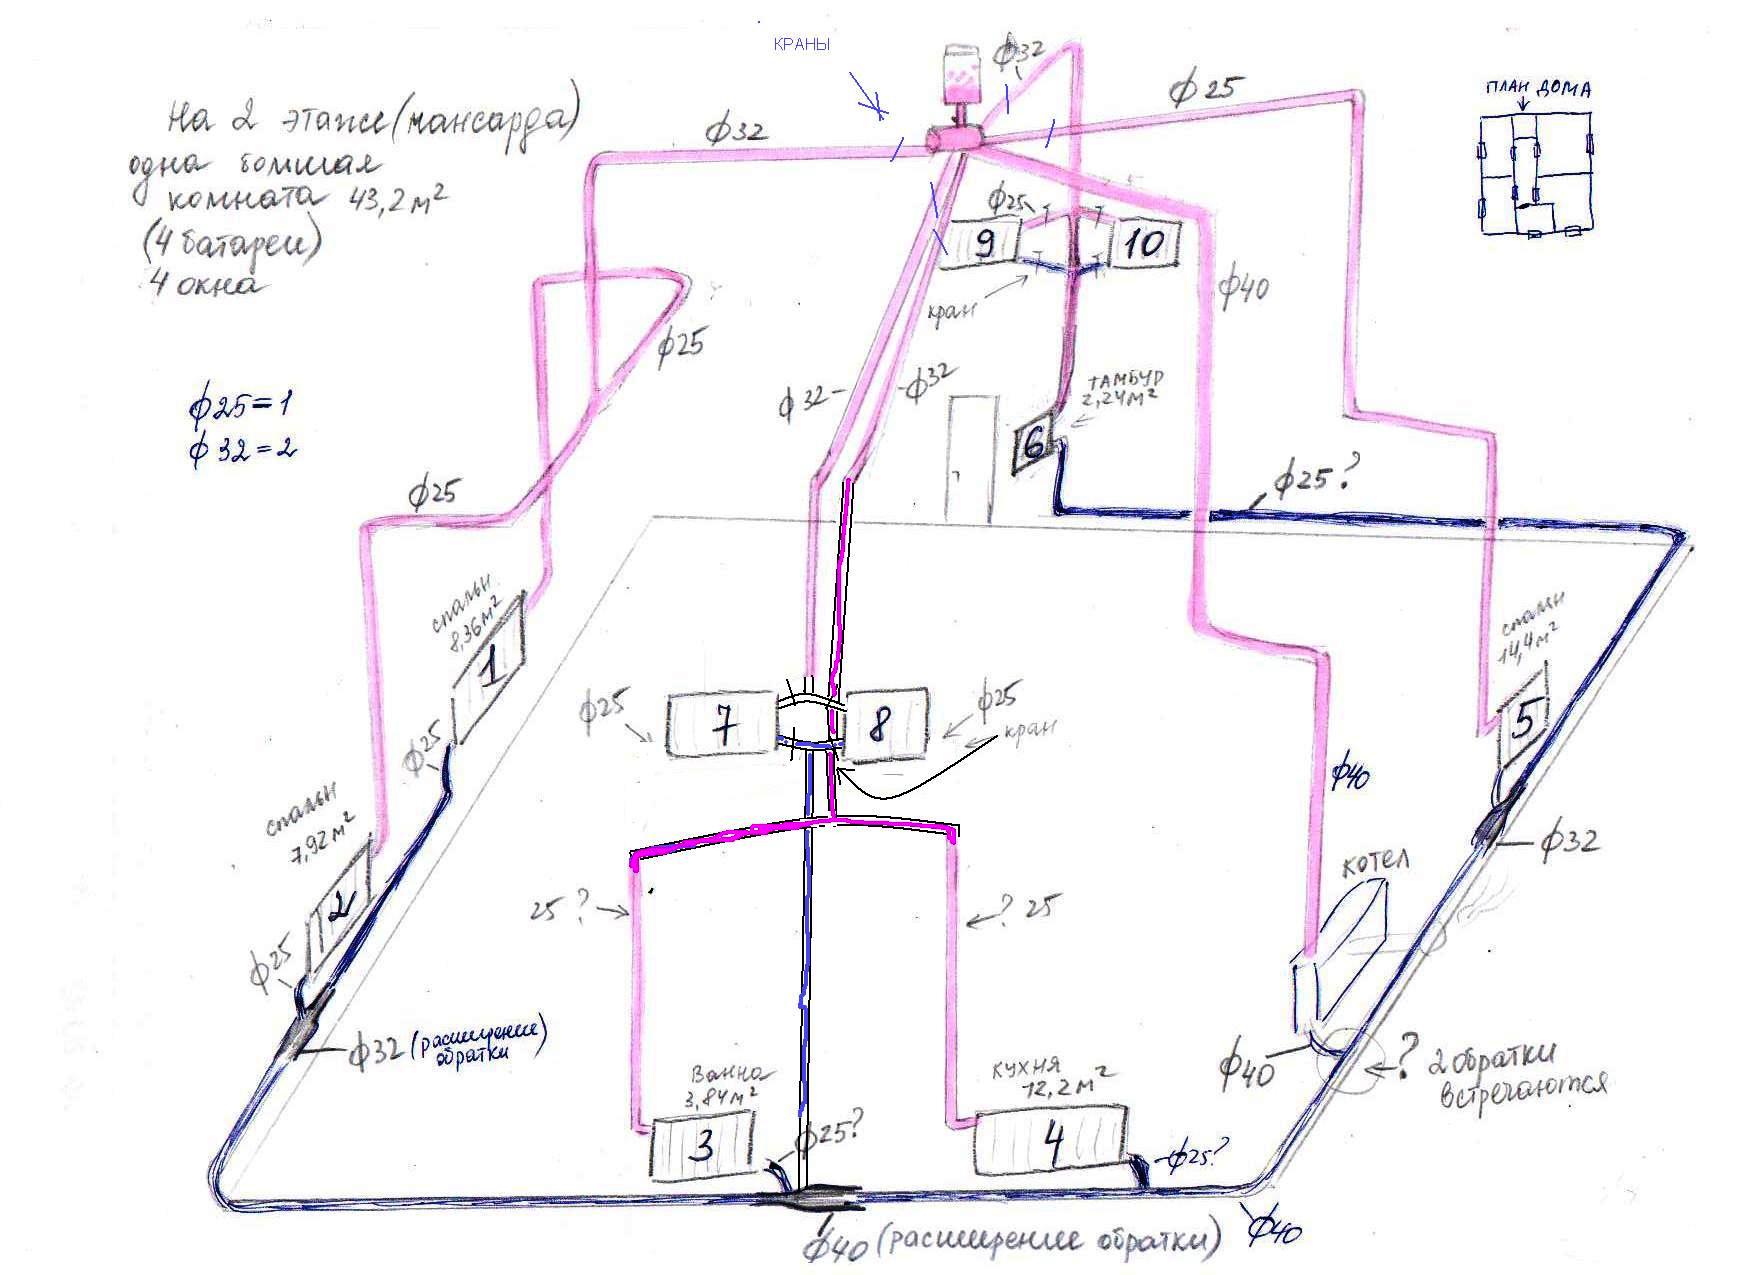 КРАНЫ
ф32
ф25
ПЛАН ДОМА
На 2 этаже (мансарда)
одна большая
комната 43,2 м²
(4 батареи)
4 окна
ф32
ф25
9
10
ф40
кран
ф25
ф32
ф32
ТАМБУР
2,24м²
6
ф25=1
ф32=2
ф25
ф25?
спальн
8,36м²
1
спальн
14,4м²
5
ф25
7
8
ф25
кран
ф25
ф40
спальн
7,92м²
2
ф32
КОТЕЛ
25?
? 25
ф25
ф32 (расширение
обратки)
ф40
? 2 обратки
встречаются
Ванна
3,84м²
3
ф25?
КУХНЯ
12,2 м²
4
ф25?
ф40 (расширение обратки)
ф40